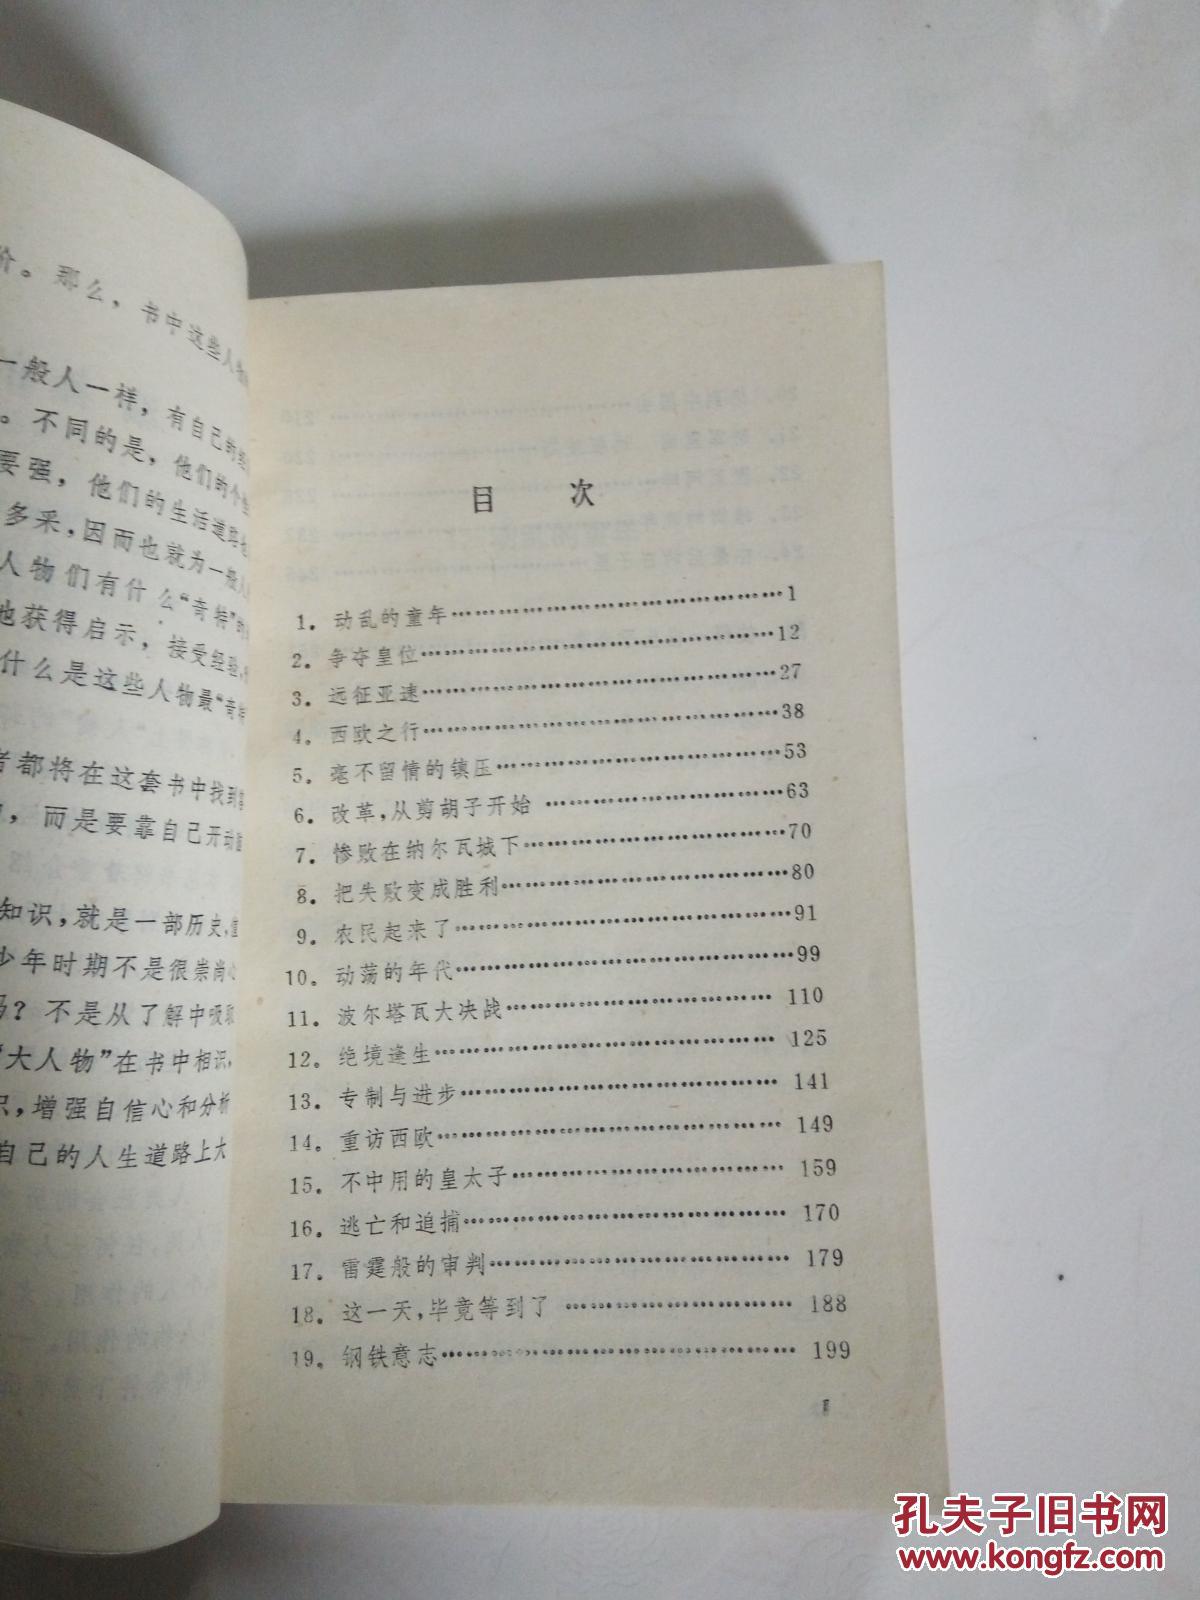 价。那么，书中这些人物
一般人一样，有自己的经
。不同的是，他们的个性
要强，他们的生活道路也
多采，因而也就为一般人
人物们有什么“奇特”的
地获得启示，接受经验，
什么是这些人物最“奇特
者都将在这套书中找到
，而是要靠自己开动脑
知识，就是一部历史，
少年时期不是很崇尚心
吗？不是从了解中吸取
“大人物”在书中相识，
识，增强自信心和分析
自己的人生道路上大
目 次
1．动乱的童年……………………………………1
2．争夺皇位……………………………………12
3．远征亚速……………………………………27
4．西欧之行……………………………………38
5．毫不留情的镇压……………………………53
6．改革，从剪胡子开始………………………63
7．惨败在纳尔瓦城下…………………………70
8．把失败变成胜利……………………………80
9．农民起来了…………………………………91
10．动荡的年代…………………………………99
11．波尔塔瓦大决战……………………………110
12．绝境逢生……………………………………125
13．专制与进步…………………………………141
14．重访西欧……………………………………149
15．不中用的皇太子……………………………159
16．逃亡和追捕…………………………………170
17．雷霆般的审判………………………………179
18．这一天，毕竟等到了………………………188
19．钢铁意志……………………………………199
1
孔夫子旧书网
www.kongfz.com